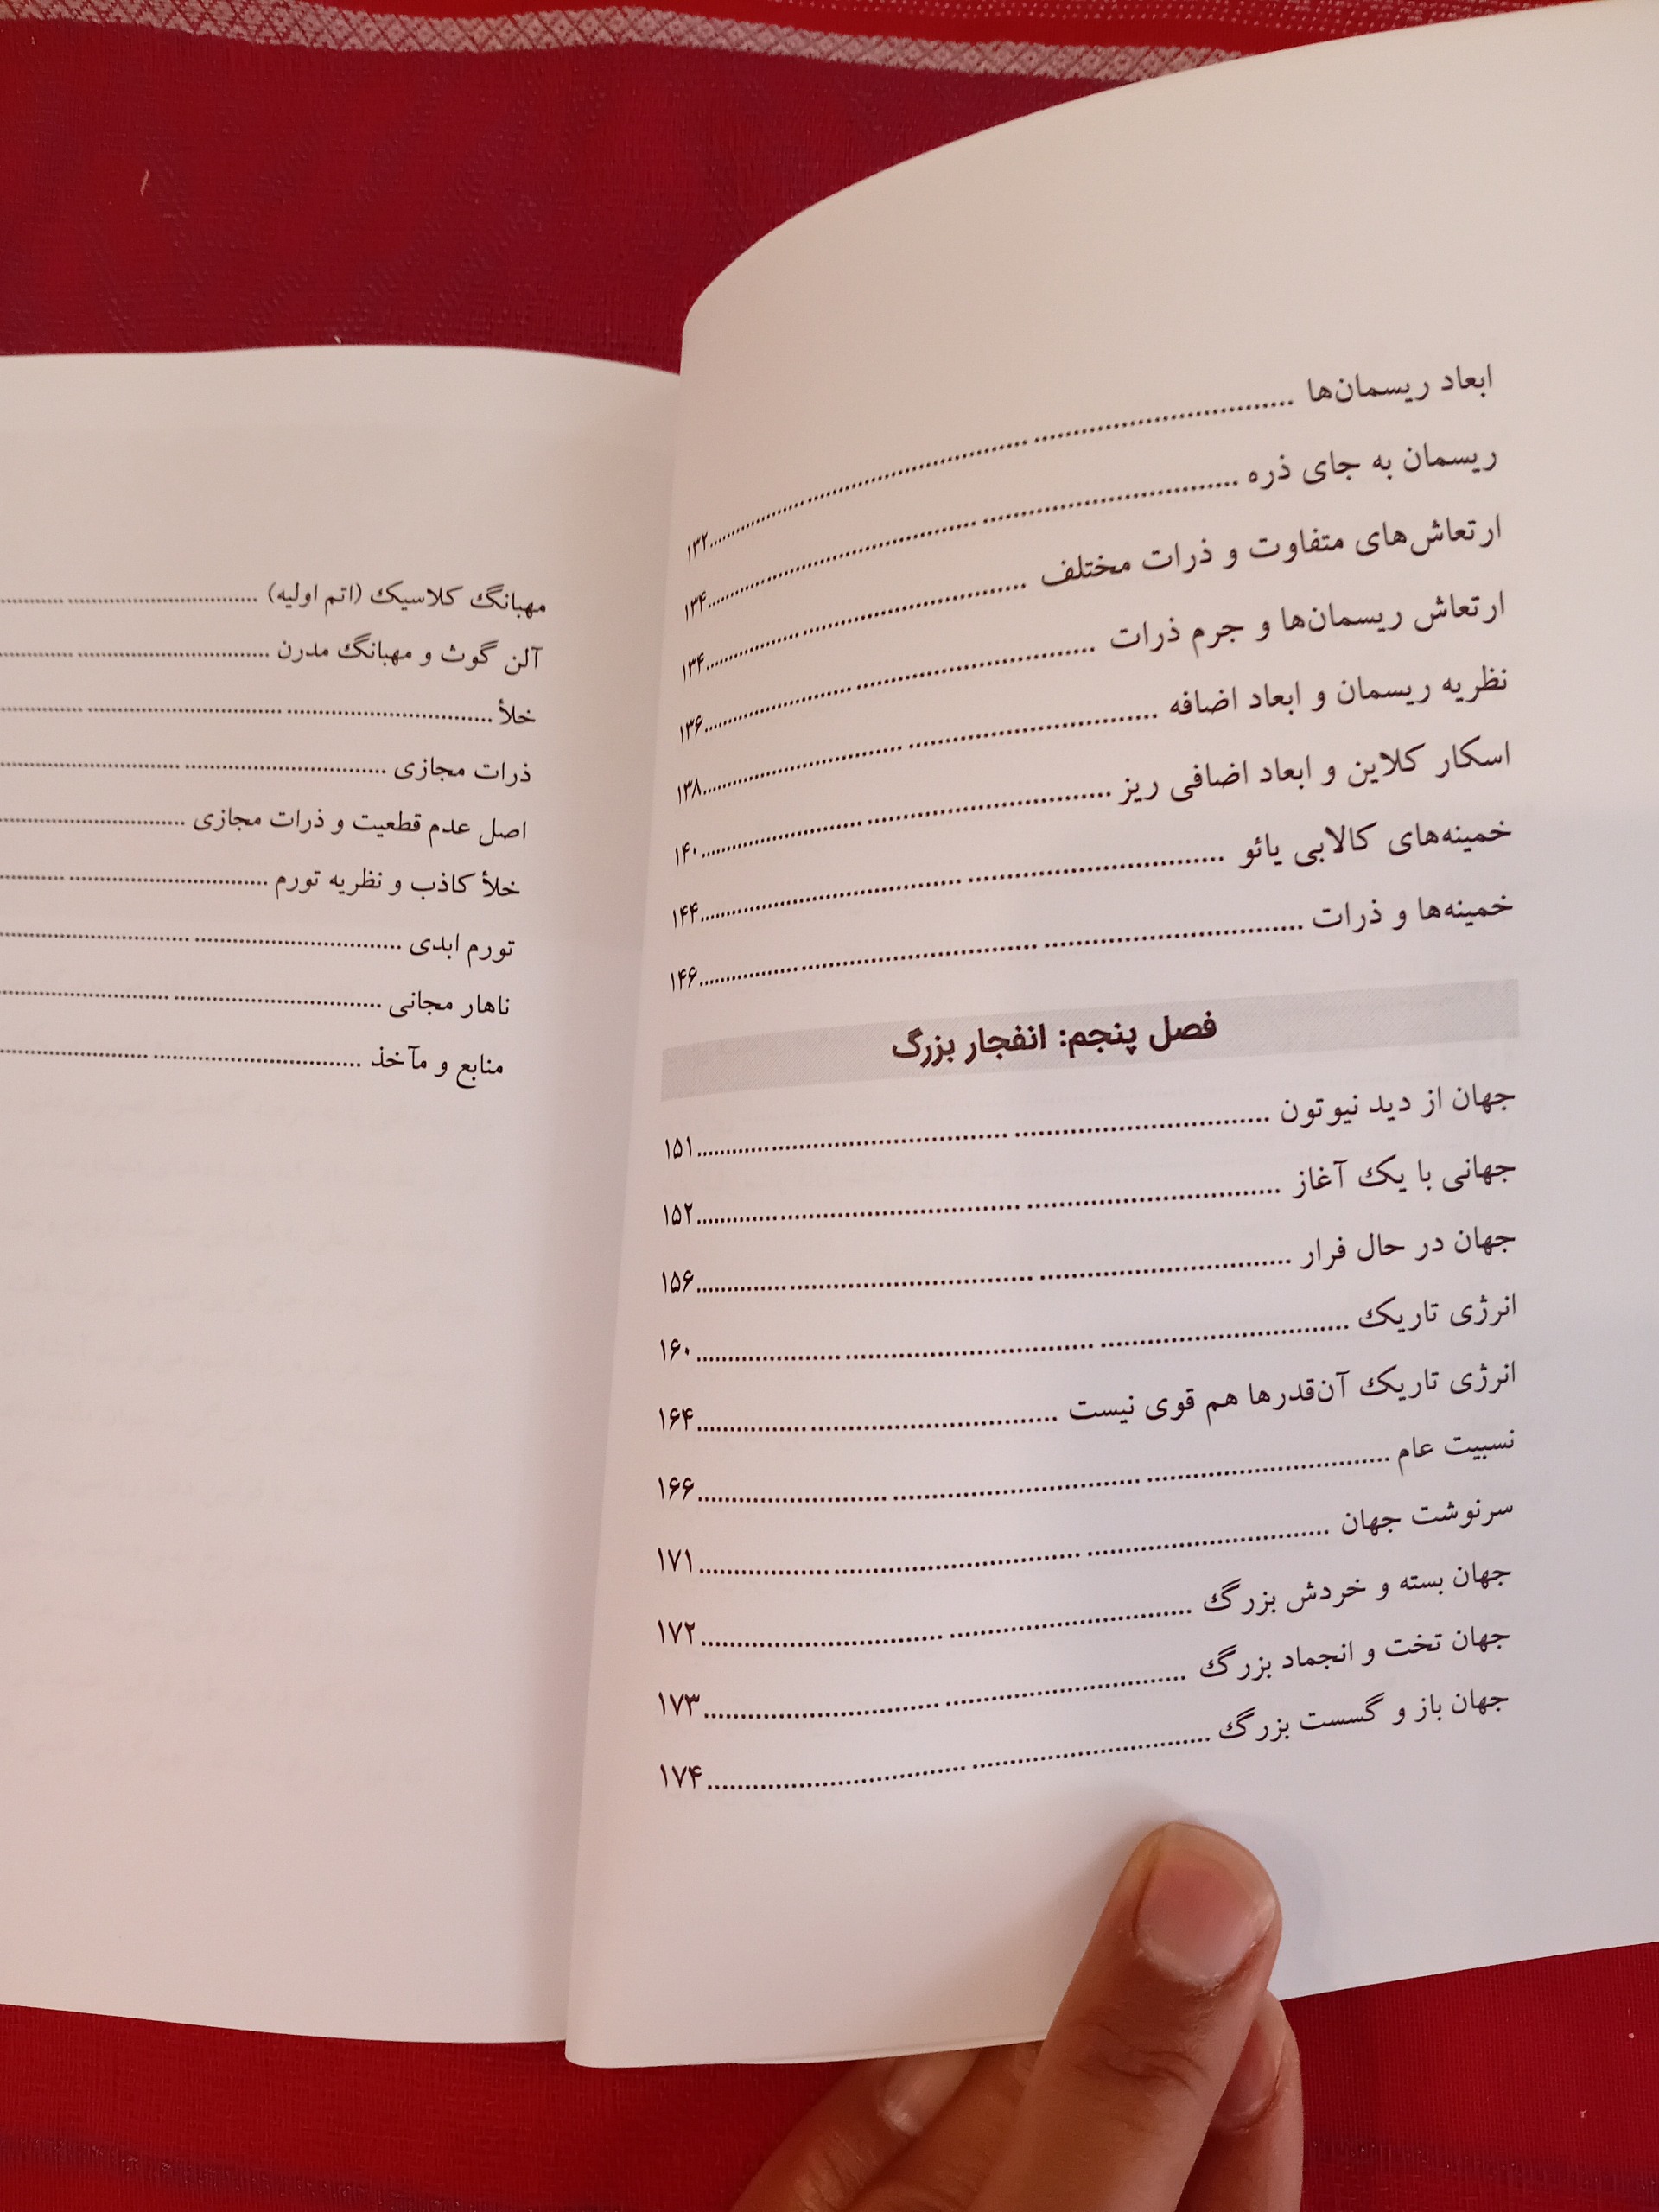 ابعاد ریسمان‌ها ........ ۱۳۲
ریسمان به جای ذره ........ ۱۳۴
ارتعاش‌های متفاوت و ذرات مختلف ........ ۱۳۴
ارتعاش ریسمان‌ها و جرم ذرات ........ ۱۳۶
نظریه ریسمان و ابعاد اضافه ........ ۱۳۸
اسکار کلاین و ابعاد اضافی ریز ........ ۱۴۰
خمینه‌های کالابی یائو ........ ۱۴۴
خمینه‌ها و ذرات ........ ۱۴۶
فصل پنجم: انفجار بزرگ
جهان از دید نیوتون ........ ۱۵۱
جهانی با یک آغاز ........ ۱۵۲
جهان در حال فرار ........ ۱۵۶
انرژی تاریک ........ ۱۶۰
انرژی تاریک آن‌قدرها هم قوی نیست ........ ۱۶۴
نسبیت عام ........ ۱۶۶
سرنوشت جهان ........ ۱۷۱
جهان بسته و خردش بزرگ ........ ۱۷۲
جهان تخت و انجماد بزرگ ........ ۱۷۳
جهان باز و گسست بزرگ ........ ۱۷۴
مهبانگ کلاسیک (اتم اولیه) ........
آلن گوث و مهبانگ مدرن ........
خلأ ........
ذرات مجازی ........
اصل عدم قطعیت و ذرات مجازی ........
خلأ کاذب و نظریه تورم ........
تورم ابدی ........
ناهار مجانی ........
منابع و مآخذ ........